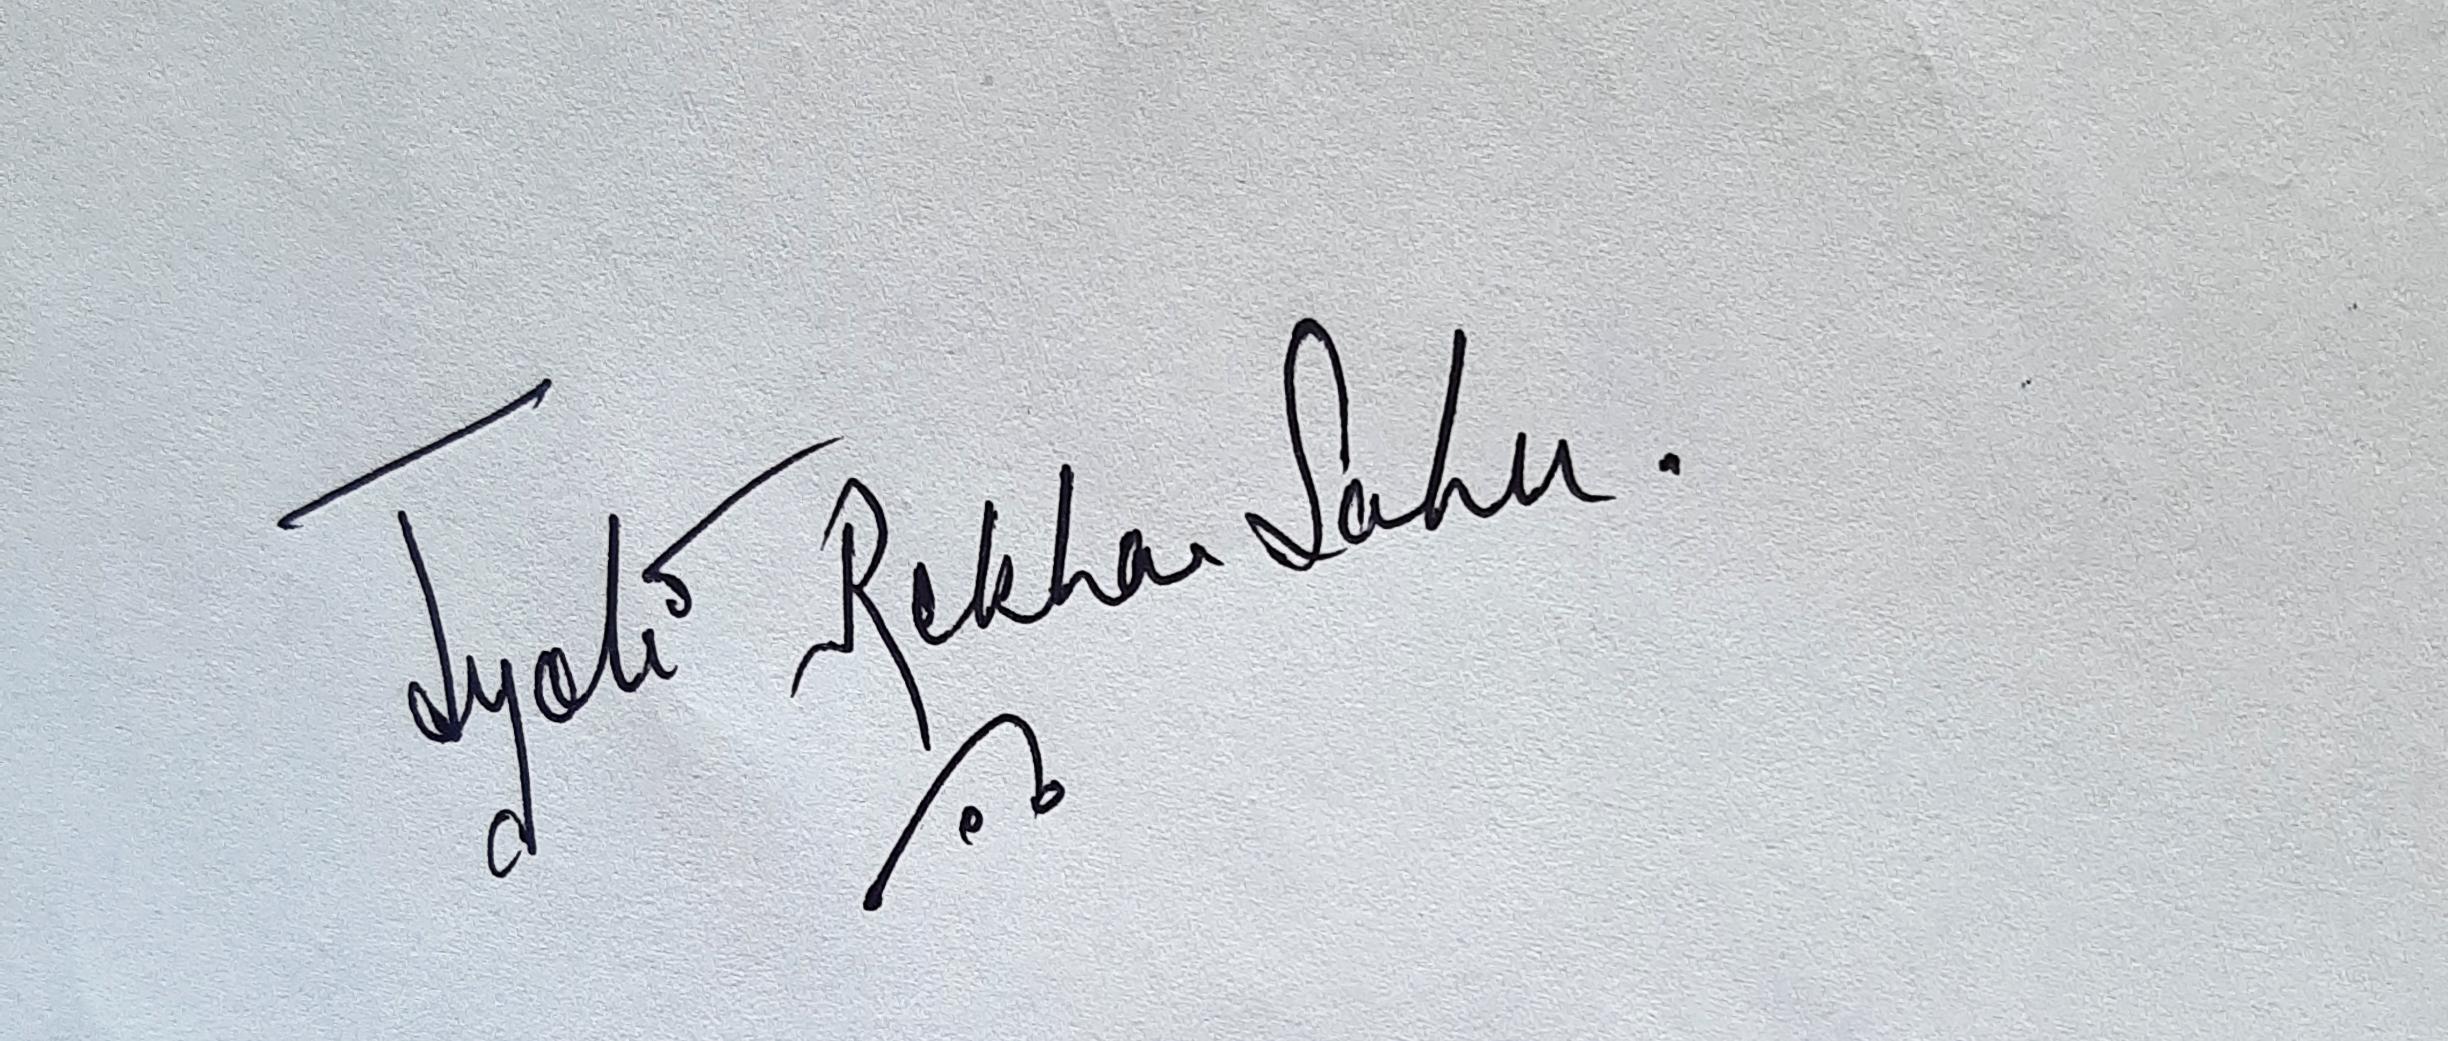 Jyoti Rekha Sahu.